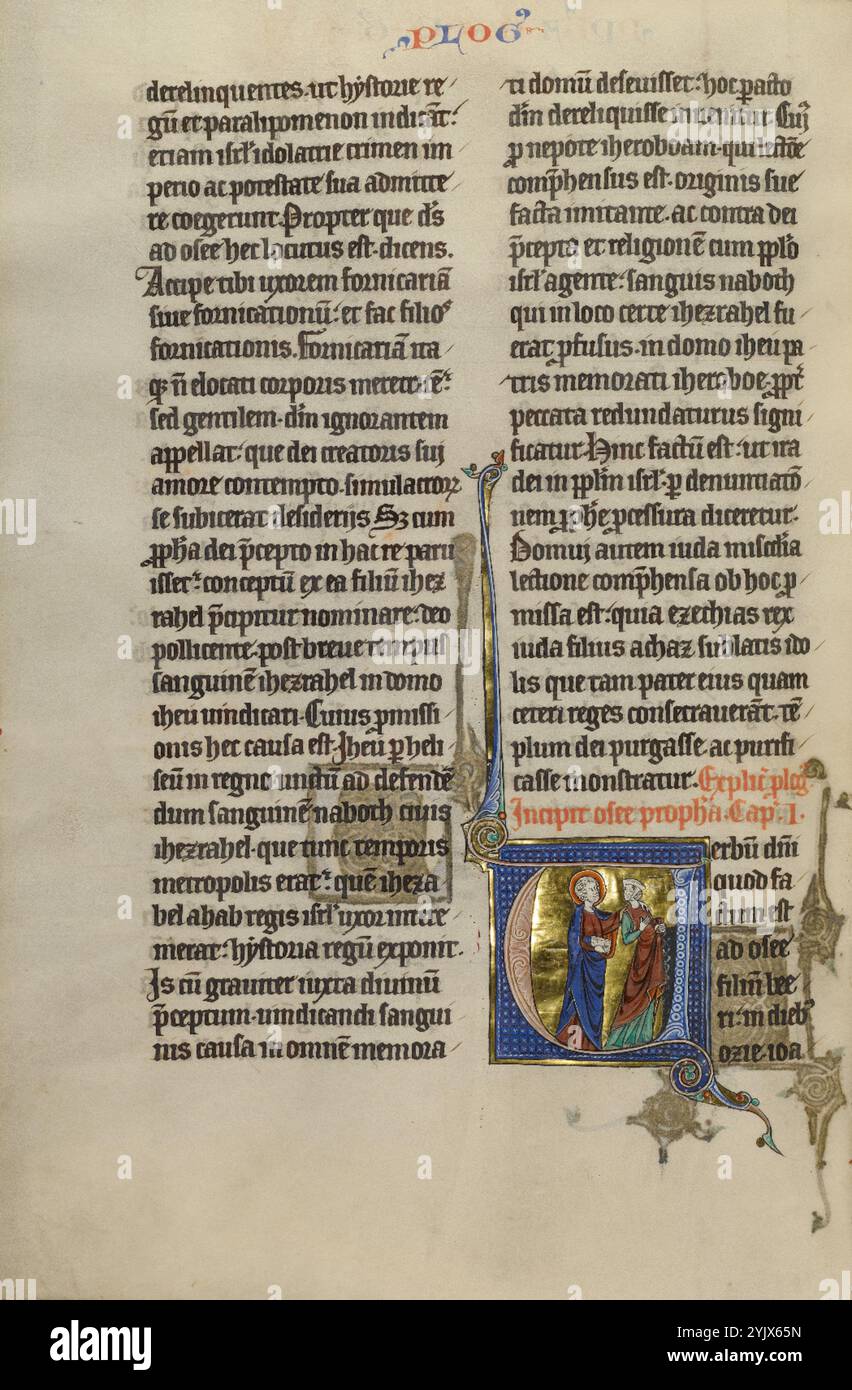 PLOGꝰ
derelinquentes. ut hystorie re
gū et paralipomenon indicāt:
etiam isrł idolatrie crimen im
perio ac potestate sua admitte
re coegerunt. Propter que dˢ
ad osee hec locutus est. dicens.
Accipe tibi uxorem fornicariā
siue fornicationū: et fac filioˢ
fornicationis. Fornicariā ita
qꝫ ñ elocati corporis meret
sed gentilem. dm̄ ignorantem
appellat: que dei creatoris sui
amore contempto. simulacroꝝ
se subicerat desiderijs. Sꝫ cum
ꝓph̄a dei p̄cepto in hac re paru
isset: conceptū ex ea filiū ihez
rahel p̄cipitur nominare: deo
pollicente. post breue tempus
sanguinē ihezrahel in domo
iheu uindicari. Cuius ꝓmissi
onis hec causa est. Iheu ꝑ heli
seū in regno unctū ad defendē
dum sanguinē naboth ciuis
ihezrahel. que tunc temporis
metropolis erat: quē iheza
bel ahab regis isrł uxor intere
merat: hystoria regū exponit.
Is cū grauiter iuxta diuinū
p̄ceptum. uindicandi sangui
nis causa in omnē memora
ti domū deseuisset: hoc ꝑacto
dm̄ dereliquisse inuenitur. Cuiꝰ
ꝓ nepote iheroboam. qui lectōe
comp̄hensus est. originis sue
facta imitante. ac contra dei
p̄cepta et religionē cum ppłō
isrł agente: sanguis naboth
qui in loco certe ihezrahel fu
erat ꝓfusus. in domo iheu pa
tris memorati iheroboe. ꝓpt̾
peccata redundaturus signi
ficatur. Hinc factū est: ut ira
dei in pplm̄ isrł. ꝑ denunciatō
nem ꝓph̄e ꝓcessura diceretur.
Domui autem iuda mīsc̄dia
lectione comp̄hensa ob hoc ꝓ
missa est: quia ezechias rex
iuda filius achaz sublatis ido
lis que tam pater eius quam
ceteri reges consecrauerāt. tē
plum dei purgasse. ac purifi
casse monstratur. Explic̄ plogꝰ
Incipit osee proph̄a. Cap. I.
Verbū dn̄i
quod fa
ctum est
ad osee
filiū bee
ri: in diebꝰ
ozie. ioa
alamy
Image ID: 2YJX65N
www.alamy.com